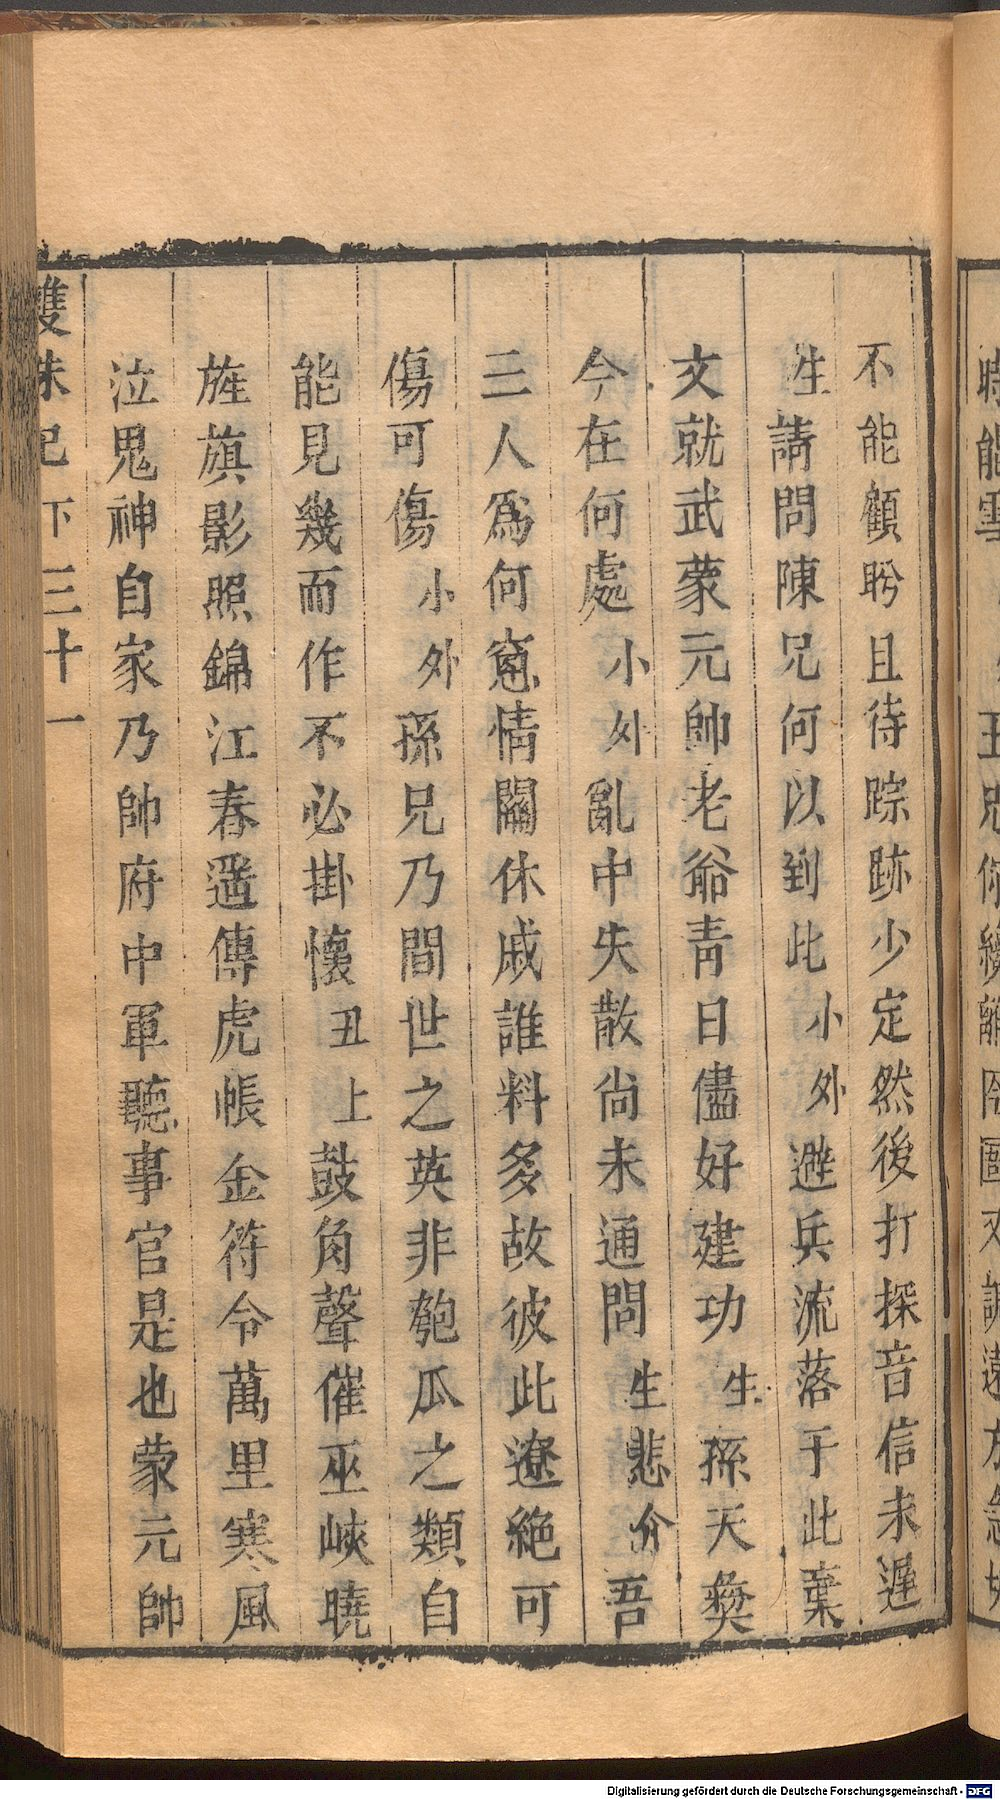 不能顧盻且待踪跡少定然後打探音信未遲
生請問陳兄何以到此小外避兵流落于此棄
文就武蒙元帥老爺青日儘好建功生孫天彜
今在何處小外亂中失散尚未通問生悲介吾
三人爲何窻情關休戚誰料多故彼此遼絕可
傷可傷小外孫兄乃間世之英非匏瓜之類自
能見幾而作不必掛懷丑上鼓角聲催巫峽曉
旌旗影照錦江春遥傳虎帳金符令萬里寒風
泣鬼神自家乃帥府中軍聽事官是也蒙元帥
雙珠記下三十一
Digitalisierung gefördert durch die Deutsche Forschungsgemeinschaft - DFG